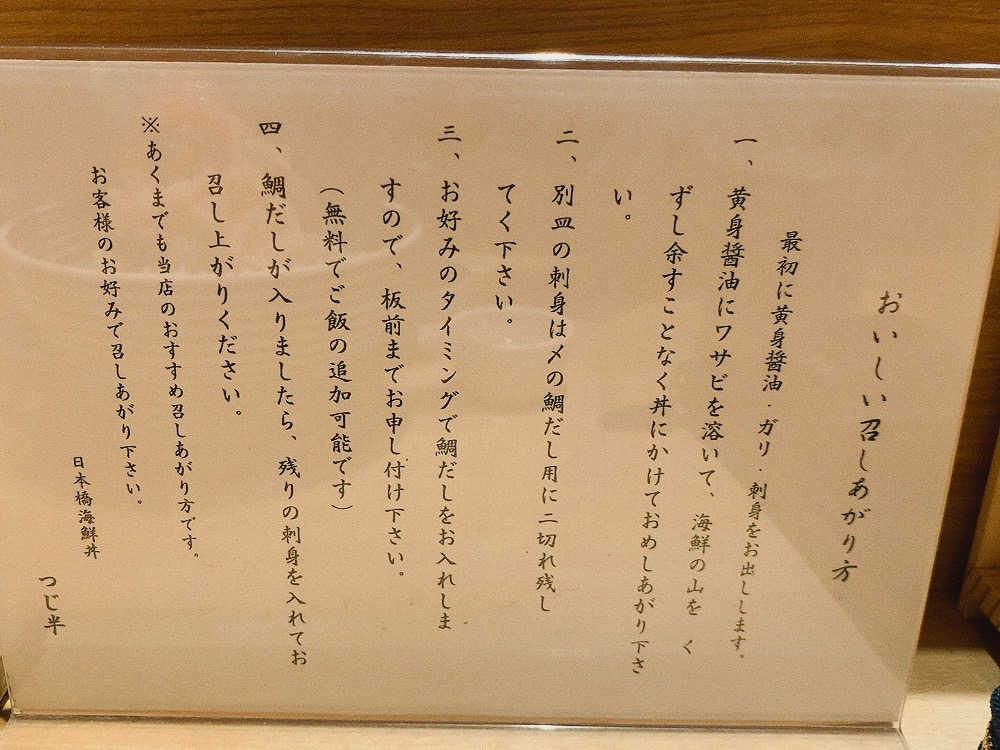 おいしい召しあがり方
最初に黄身醤油・ガリ・刺身をお出しします。
一、黄身醤油にワサビを溶いて、海鮮の山を く
ずし余すことなく丼にかけておめしあがり下さ
い。
二、別皿の刺身は〆の鯛だし用に二切れ残し
てく下さい。
三、お好みのタイミングで鯛だしをお入れしま
すので、板前までお申し付け下さい。
(無料でご飯の追加可能です)
四、鯛だしが入りましたら、残りの刺身を入れてお
召し上がりください。
※あくまでも当店のおすすめ召しあがり方です。
お客様のお好みで召しあがり下さい。
日本橋海鮮丼
つじ半